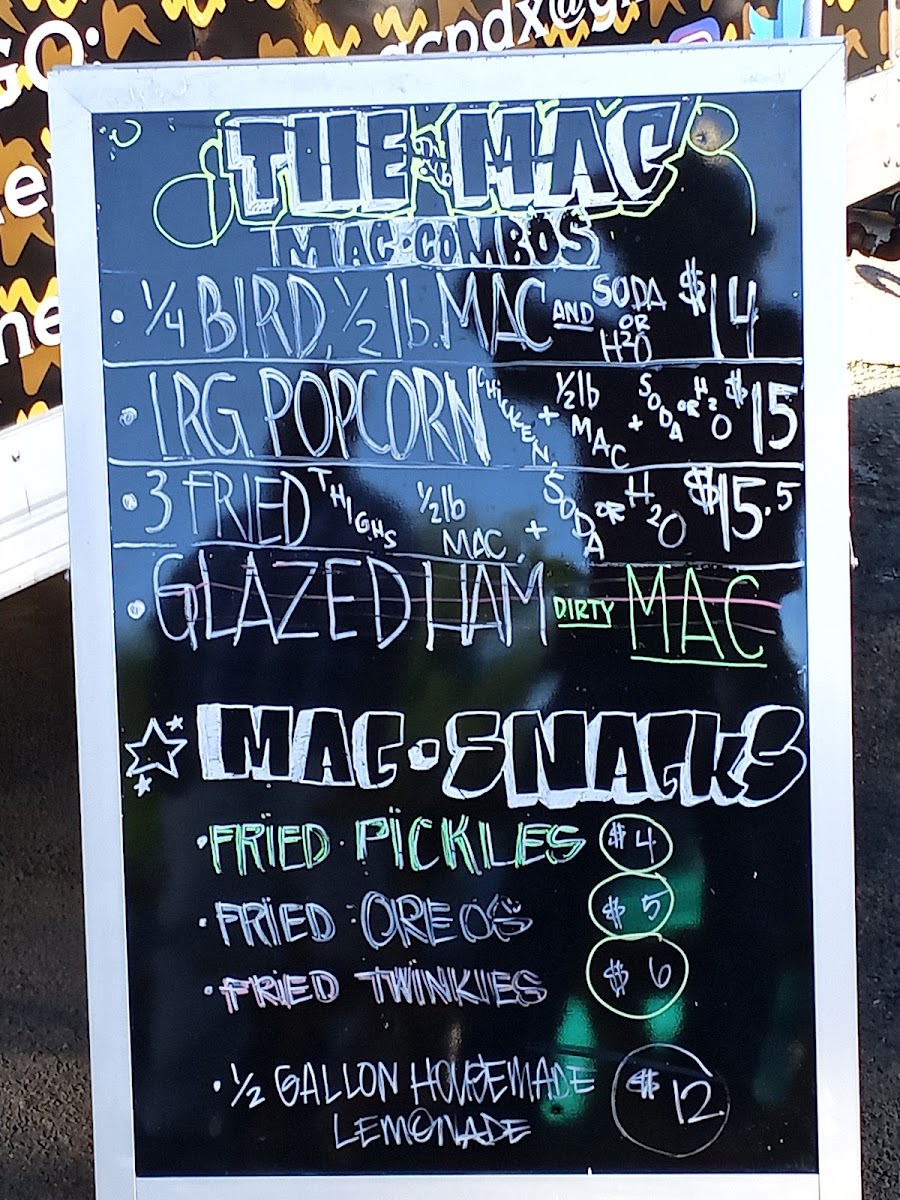 GO:
gcpdx@g
THE MAC
MAC•COMBOS
• 1/4 BIRD, 1/2 lb. MAC AND SODA OR H2O $14
• LRG. POPCORN CHICKEN, + 1/2 lb MAC + SODA OR H2O $15
• 3 FRIED THIGHS, 1/2 lb MAC, + SODA OR H2O $15.5
• GLAZED HAM DIRTY MAC
MAC•SNACKS
• FRIED PICKLES $4
• FRIED OREOS $5
• FRIED TWINKIES $6
• 1/2 GALLON HOUSEMADE $12
LEMONADE